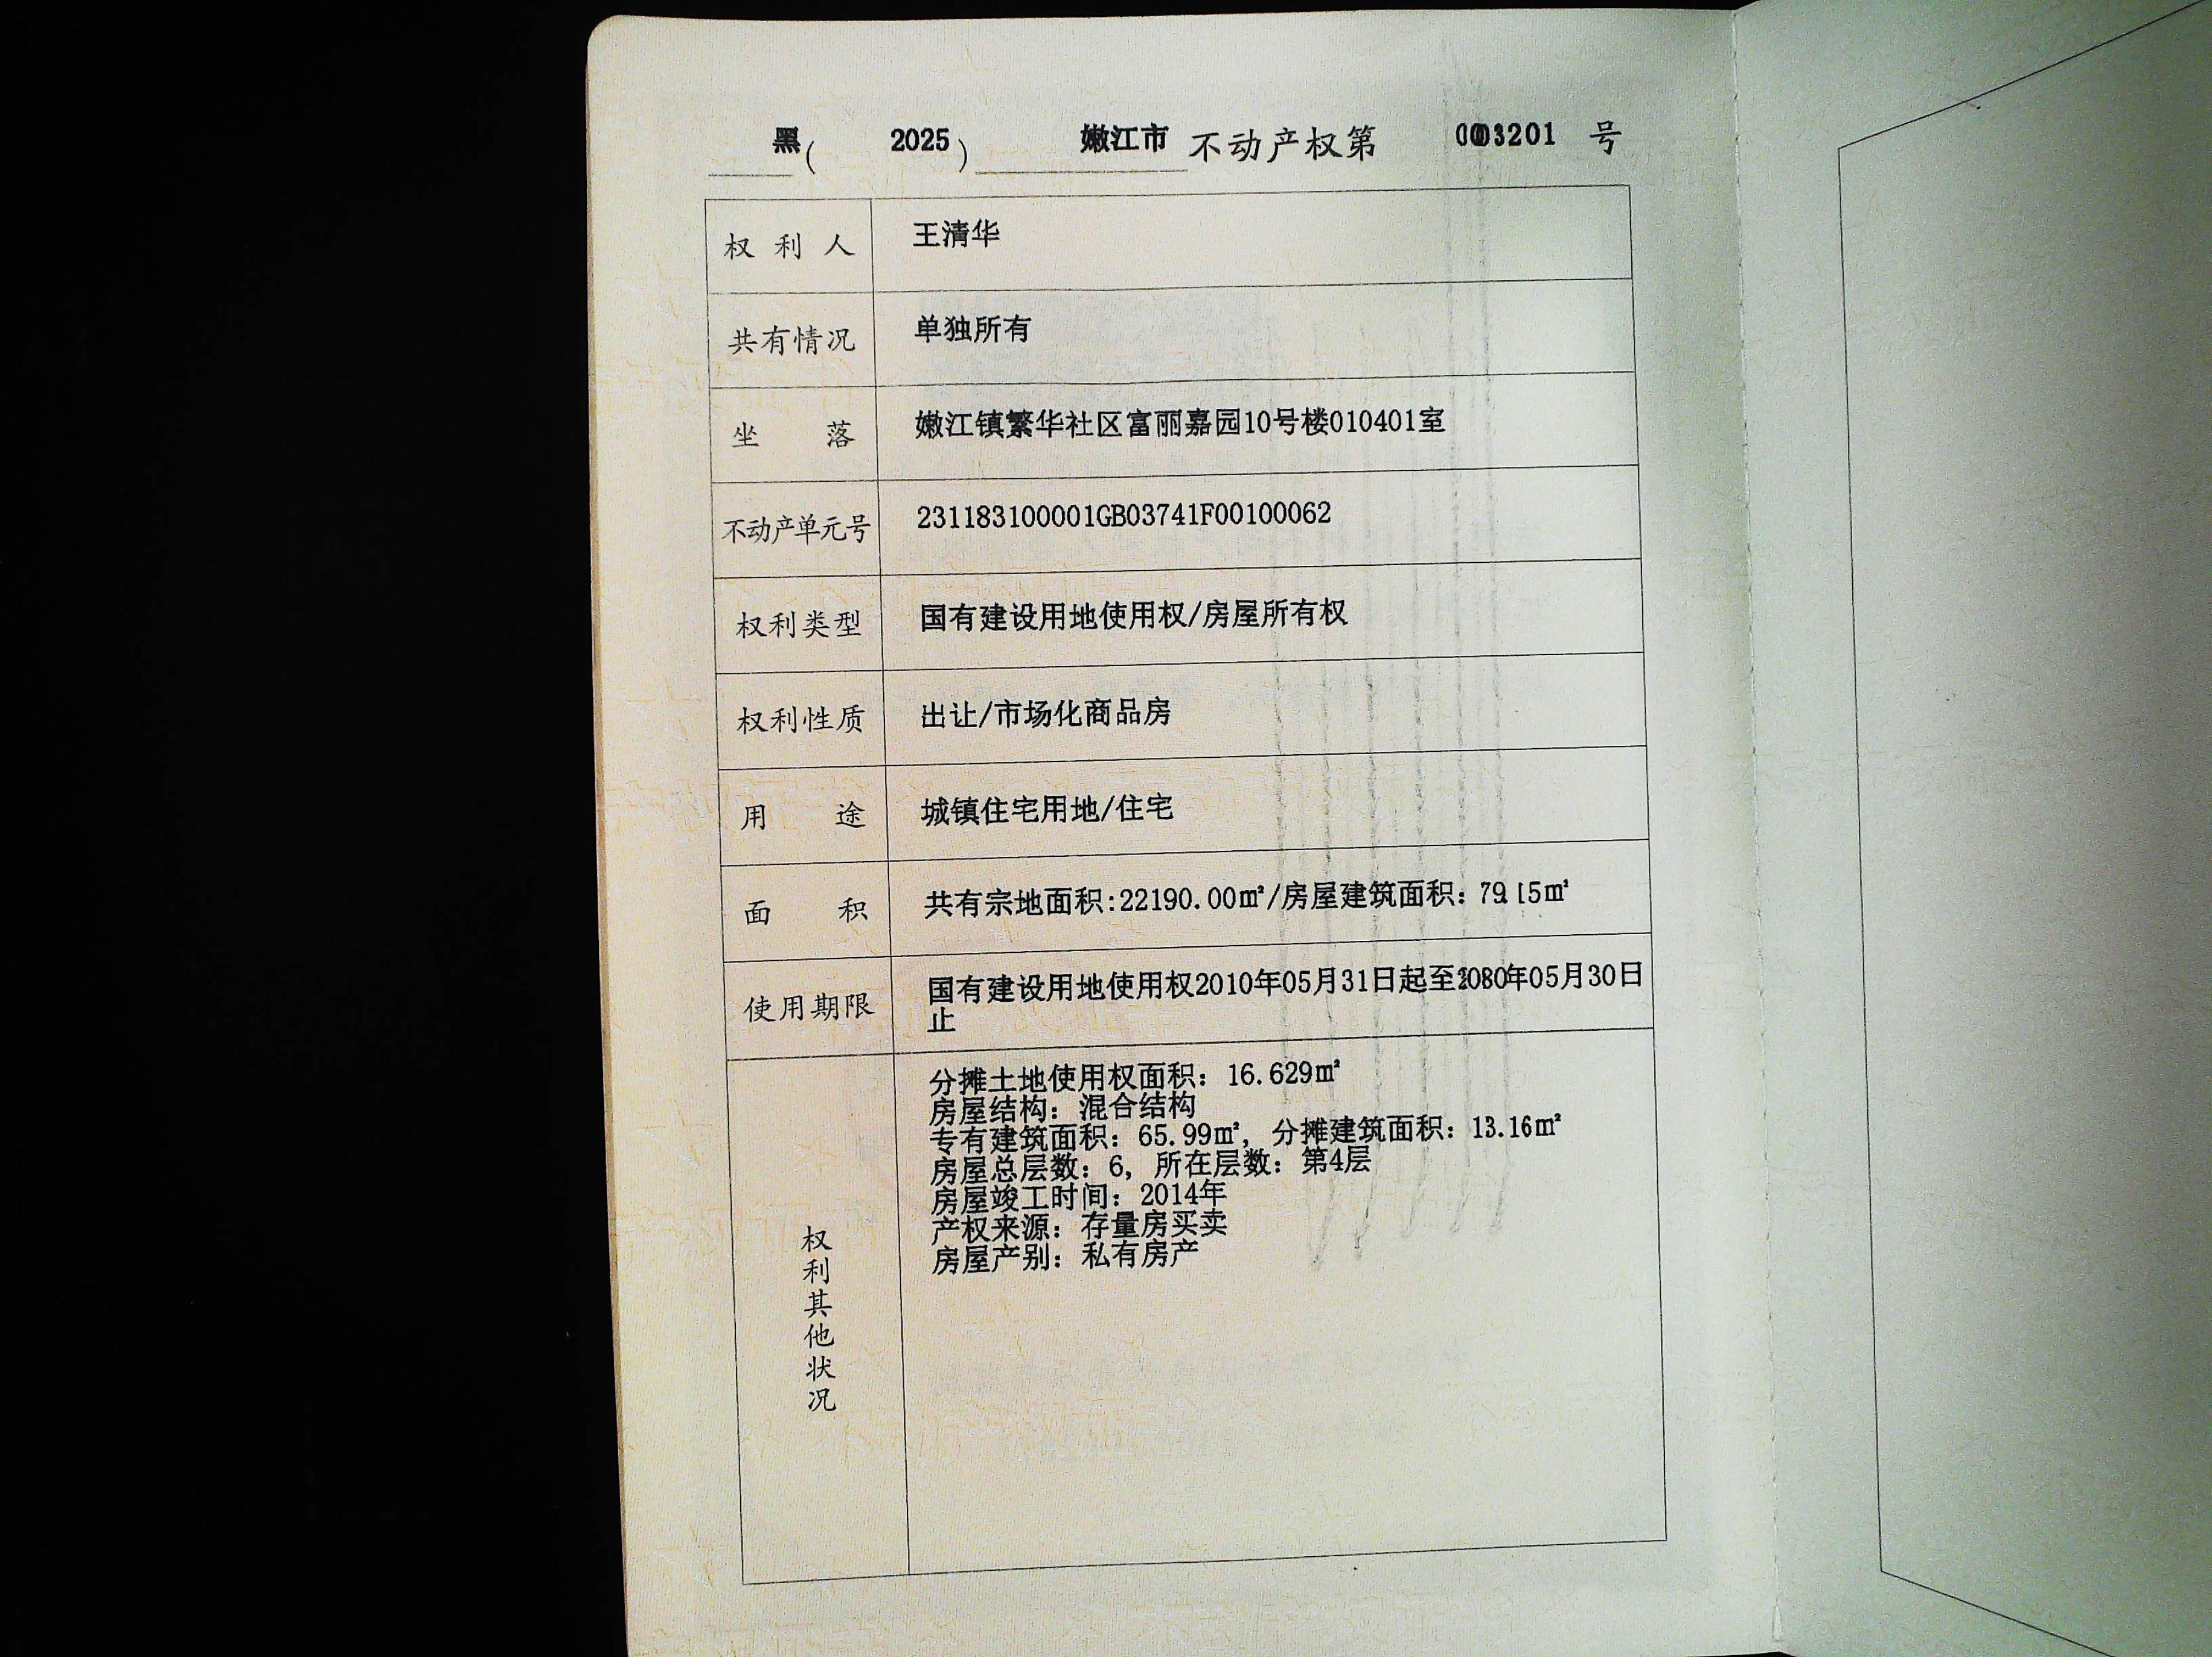 黑( 2025 ) 嫩江市 不动产权第 0003201 号
权利人 王清华
共有情况 单独所有
坐落 嫩江镇繁华社区富丽嘉园10号楼010401室
不动产单元号 231183100001GB03741F00100062
权利类型 国有建设用地使用权/房屋所有权
权利性质 出让/市场化商品房
用途 城镇住宅用地/住宅
面积 共有宗地面积:22190.00㎡/房屋建筑面积: 79.15㎡
使用期限 国有建设用地使用权2010年05月31日起至2080年05月30日
止
权利其他状况
分摊土地使用权面积: 16.629㎡
房屋结构: 混合结构
专有建筑面积: 65.99㎡, 分摊建筑面积: 13.16㎡
房屋总层数: 6, 所在层数: 第4层
房屋竣工时间: 2014年
产权来源: 存量房买卖
房屋产别: 私有房产